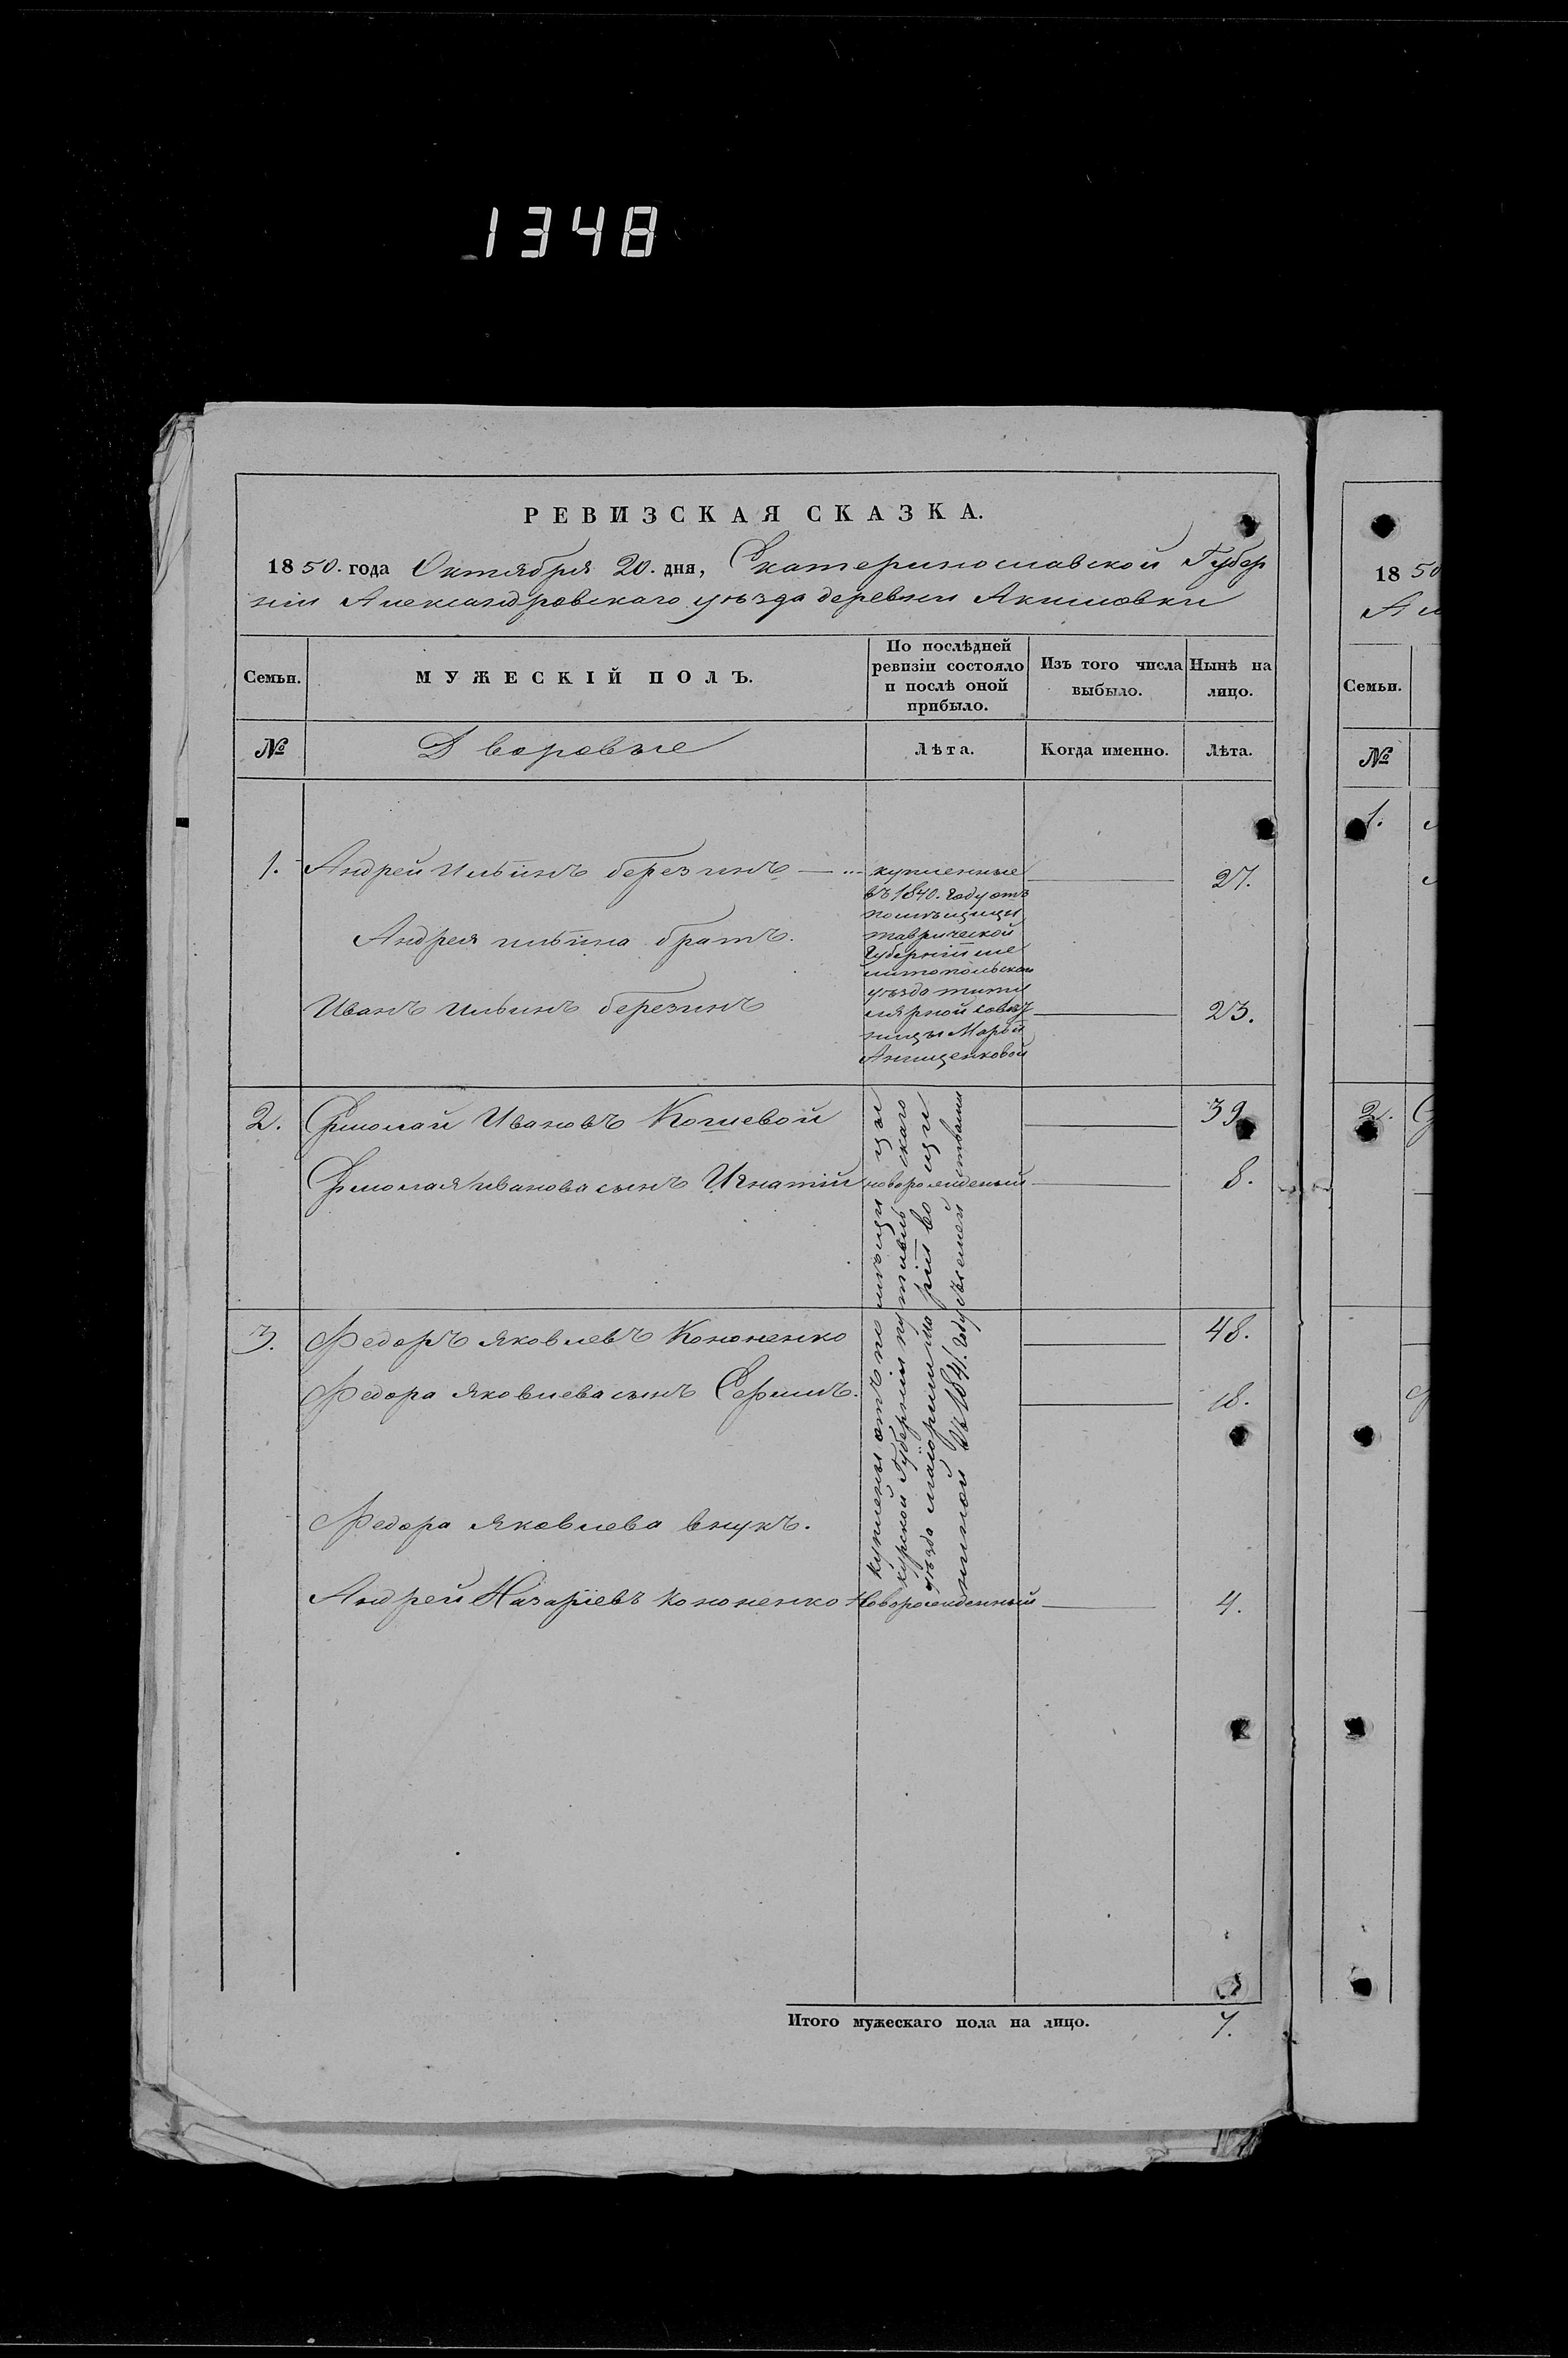 1348
РЕВИЗСКАЯ СКАЗКА.
1850. года Октября 20. дня, Екатеринославской Губер
ніи Александровскаго уѣзда деревни Акимовки
Семьи.
МУЖЕСКІЙ ПОЛЪ.
По послѣдней
ревизіи состояло
и послѣ оной
прибыло.
Изъ того числа
выбыло.
Нынѣ на
лицо.
№
Дворовые
Лѣта.
Когда именно.
Лѣта.
1. Андрей Ильинъ березинъ
купленные
въ 1840. году отъ
помѣщицы
таврической
Губерніи ме
литопольскаго
уѣзда титу
лярной совѣт
ницы Маріи
27.
Андрея ильина братъ.
Иванъ Ильинъ березинъ 23.
2. Ермолай Ивановъ Кошевой 39
Ермолая иванова сынъ Игнатій новорожденый 8.
3. Федоръ яковлевъ Кононенко 48.
Федора яковлева сынъ Ефимъ. 18.
Федора яковлева внукъ.
Андрей Назаріевъ кононенко Новорожденный 4.
куплены отъ помѣщицы
курской Губерніи путивльскаго
уѣзда маіорши
въ 1841. году
Итого мужескаго пола на лицо. 7.
1850
Семьи.
№
1.
2.